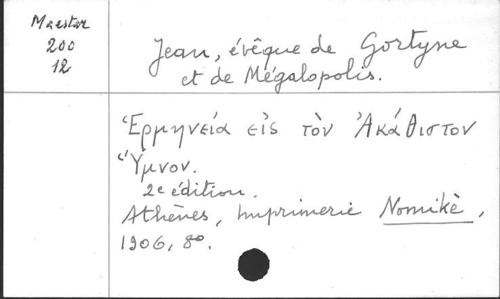 Maester
200
12
Jean, évêque de Gortyne
et de Mégalopolis.
Ἑρμηνεία εἰς τὸν Ἀκάθιστον
Ὕμνον.
2e édition.
Athènes, Imprimerie Nomikè,
1906, 8o.